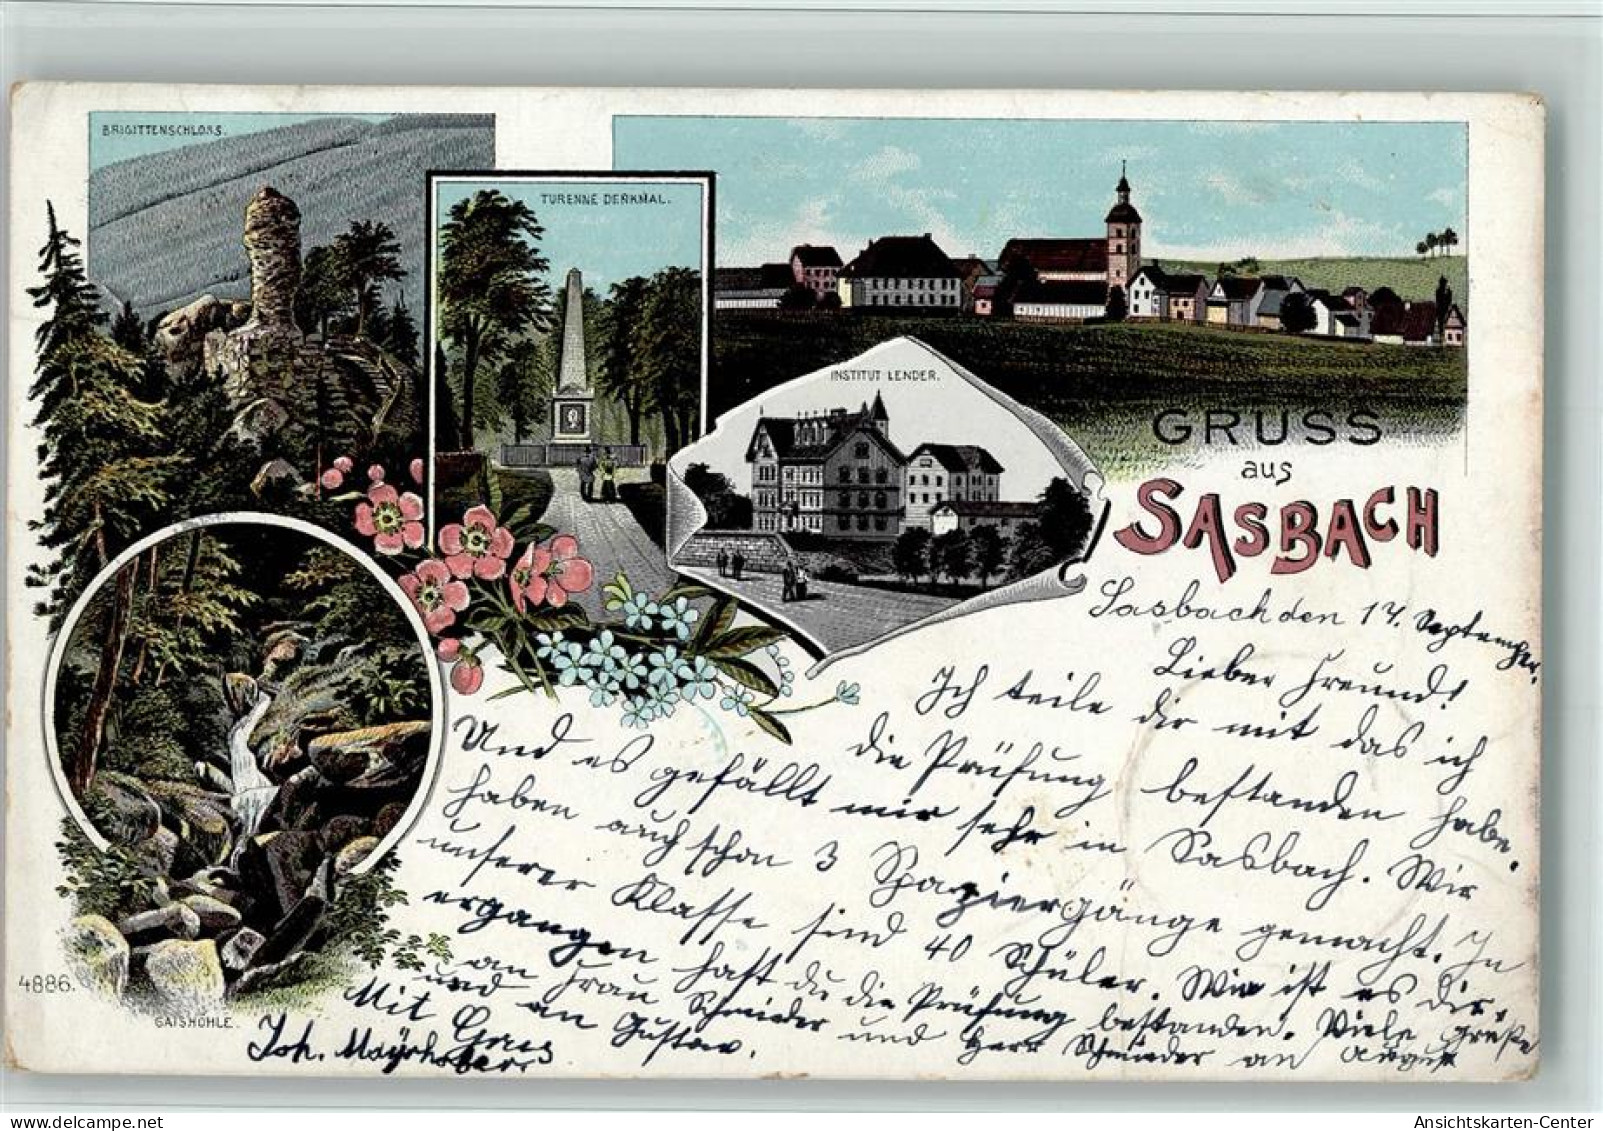 BRIGITTENSCHLOSS.
TURENNE DENKMAL.
INSTITUT LENDER.
GRUSS
aus
SASBACH
Sasbach den 17. September.
Lieber Freund!
Ich teile dir mit das ich
die Prüfung bestanden habe.
Und es gefällt mir sehr in Sasbach. Wir
haben auch schon 3 Spaziergänge gemacht. In
unserer Klasse sind 40 Schüler. Wie ist es dir
ergangen hast du die Prüfung bestanden. Viele Grüße
an Frau Schneider und Herr Schneider an August
und an Gustav.
Mit Gruss
Joh. Mayrhober
4886.
GAISHÖHLE.
Ansichtskarten-Center